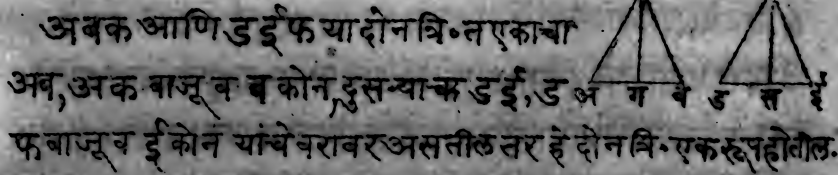 अबक आणि डईफ या दोन त्रि॰त एकाचा
अब, अक बाजू व ब कोन, दुसऱ्याच्या डई, ड
अ ग ब ड स ई
फ बाजू व ई कोन यांचे बराबर असतील तर हे दोन त्रि॰ एकरूप होतील.